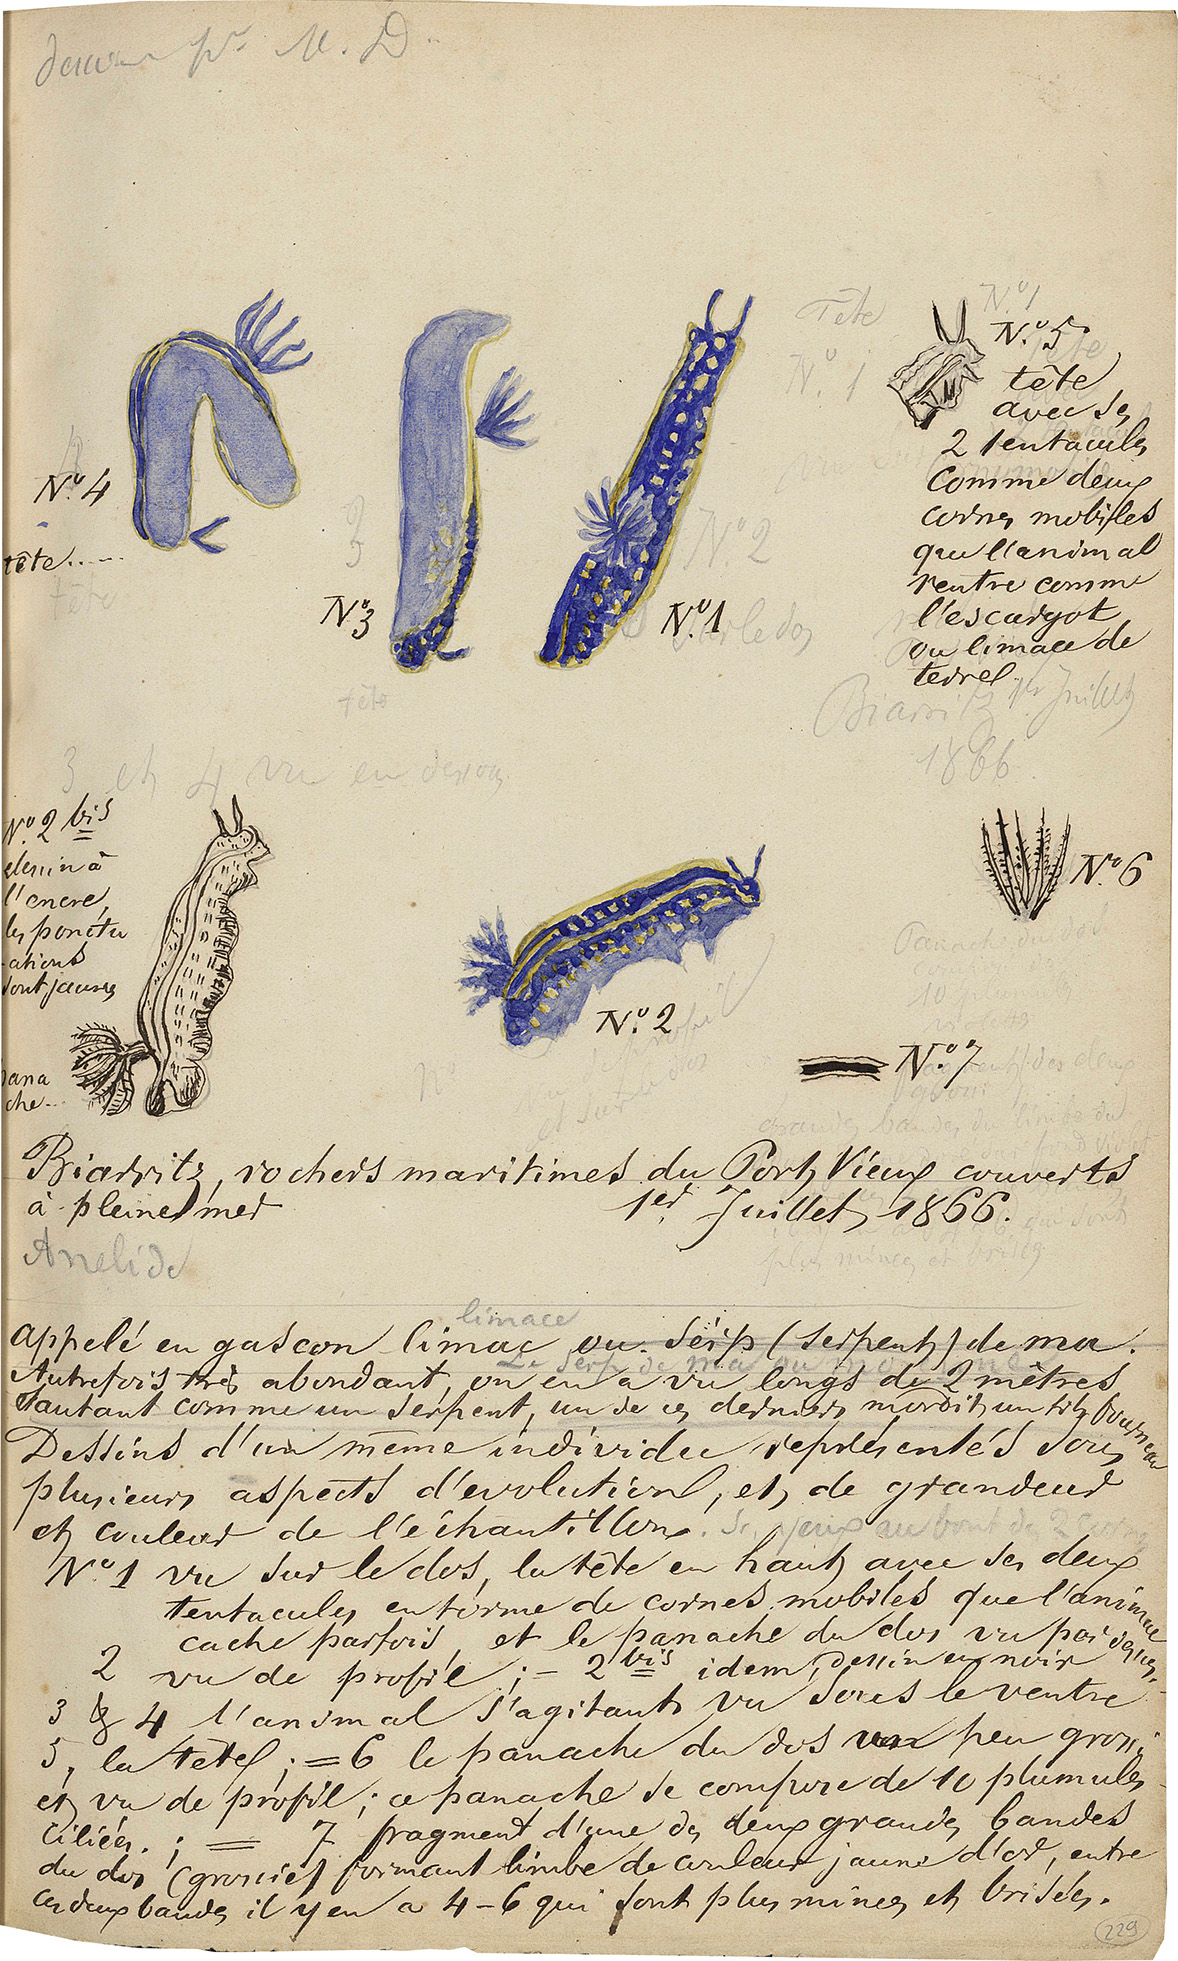 M. D.
Tête
N.º 1
N.º 1
N.º 5
tête
avec ses
2 tentacules
comme deux
cornes mobiles
que l'animal
rentre comme
l'escargot
ou limace de
terre.
N.º 4
tête......
tête
N.º 3
tête
N.º 1
N.º 2
sur le dos
Biarritz 1er Juillet
1866
3 et 4 vu en dessous
N.º 2 bis
dessin à
l'encre,
les ponctu
-ations
sont jaunes
pana
che..
N.º 2
N.º 6
N.º 7
et sur le dos
Biarritz, rochers maritimes du Port Vieux couverts
à pleine mer 1er Juillet 1866.
Anelide
limace
appelé en gascon limac ou Serp (serpent) de ma.
Autrefois très abondant, on en a vu longs de 2 mètres
sautant comme un serpent, un de ces derniers mordit un
Dessins d'un même individu représentés sous
plusieurs aspects d'evolution, et de grandeur
et couleur de l'échantillon.
N.º 1 vu sur le dos, la tête en haut avec ses deux
tentacules en forme de cornes mobiles que l'animal
cache parfois, et le panache du dos vu par dessus.
2 vu de profil ; = 2 bis idem, dessin en noir
3 & 4 l'animal s'agitant vu sous le ventre
5, la tête ; = 6 le panache du dos un peu grossi
et vu de profil ; ce panache se compose de 10 plumules
ciliées. ; = 7 fragment d'une des deux grandes bandes
du dos (grossie) formant limbe de couleur jaune d'or, entre
ces deux bandes il y en a 4-6 qui sont plus minces et brisées.
229